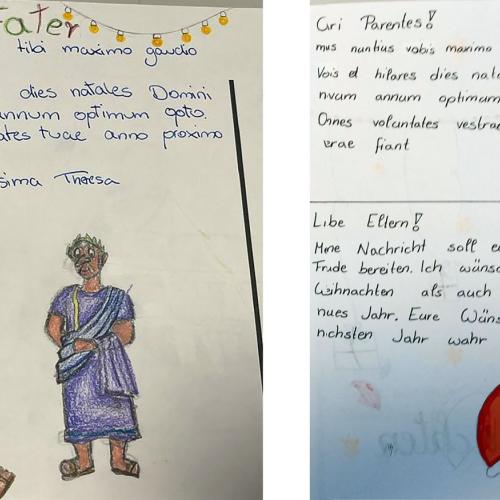 Pater
tibi maximo gaudio
dies natales Domini
annum optimum opto.
tates tuae anno proximo
sima Theresa
Cri Parentes!
mus nuntius vobis maximo
Vois et hilares dies nata
nvum annum optimum
Onnes voluntates vestra
erae fiant
Libe Eltern!
Mine Nachricht soll e
Frude bereiten. Ich wünsc
Wihnachten als auch
nues Jahr. Eure Wüns
nichsten Jahr wahr